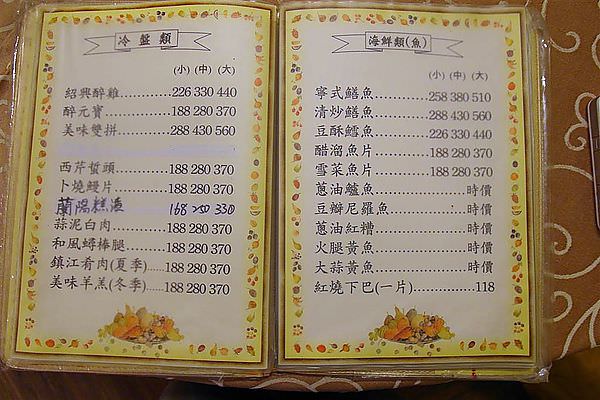 冷盤類
(小)(中)(大)
紹興醉雞..............226 330 440
醉元寶..................188 280 370
美味雙拼..............288 430 560
西芹蜇頭..............188 280 370
卜燒鰻片..............188 280 370
168 250 330
蒜泥白肉..............188 280 370
和風蟳棒腿..........188 280 370
鎮江肴肉(夏季)......188 280 370
美味羊羔(冬季)......188 280 370
海鮮類(魚)
(小)(中)(大)
寧式鱔魚..............258 380 510
清炒鱔魚..............288 430 560
豆酥鱈魚..............226 330 440
醋溜魚片..............188 280 370
雪菜魚片..............188 280 370
蔥油鱸魚..............時價
豆瓣尼羅魚..............時價
蔥油紅糟..............時價
火腿黃魚..............時價
大蒜黃魚..............時價
紅燒下巴(一片)..............118